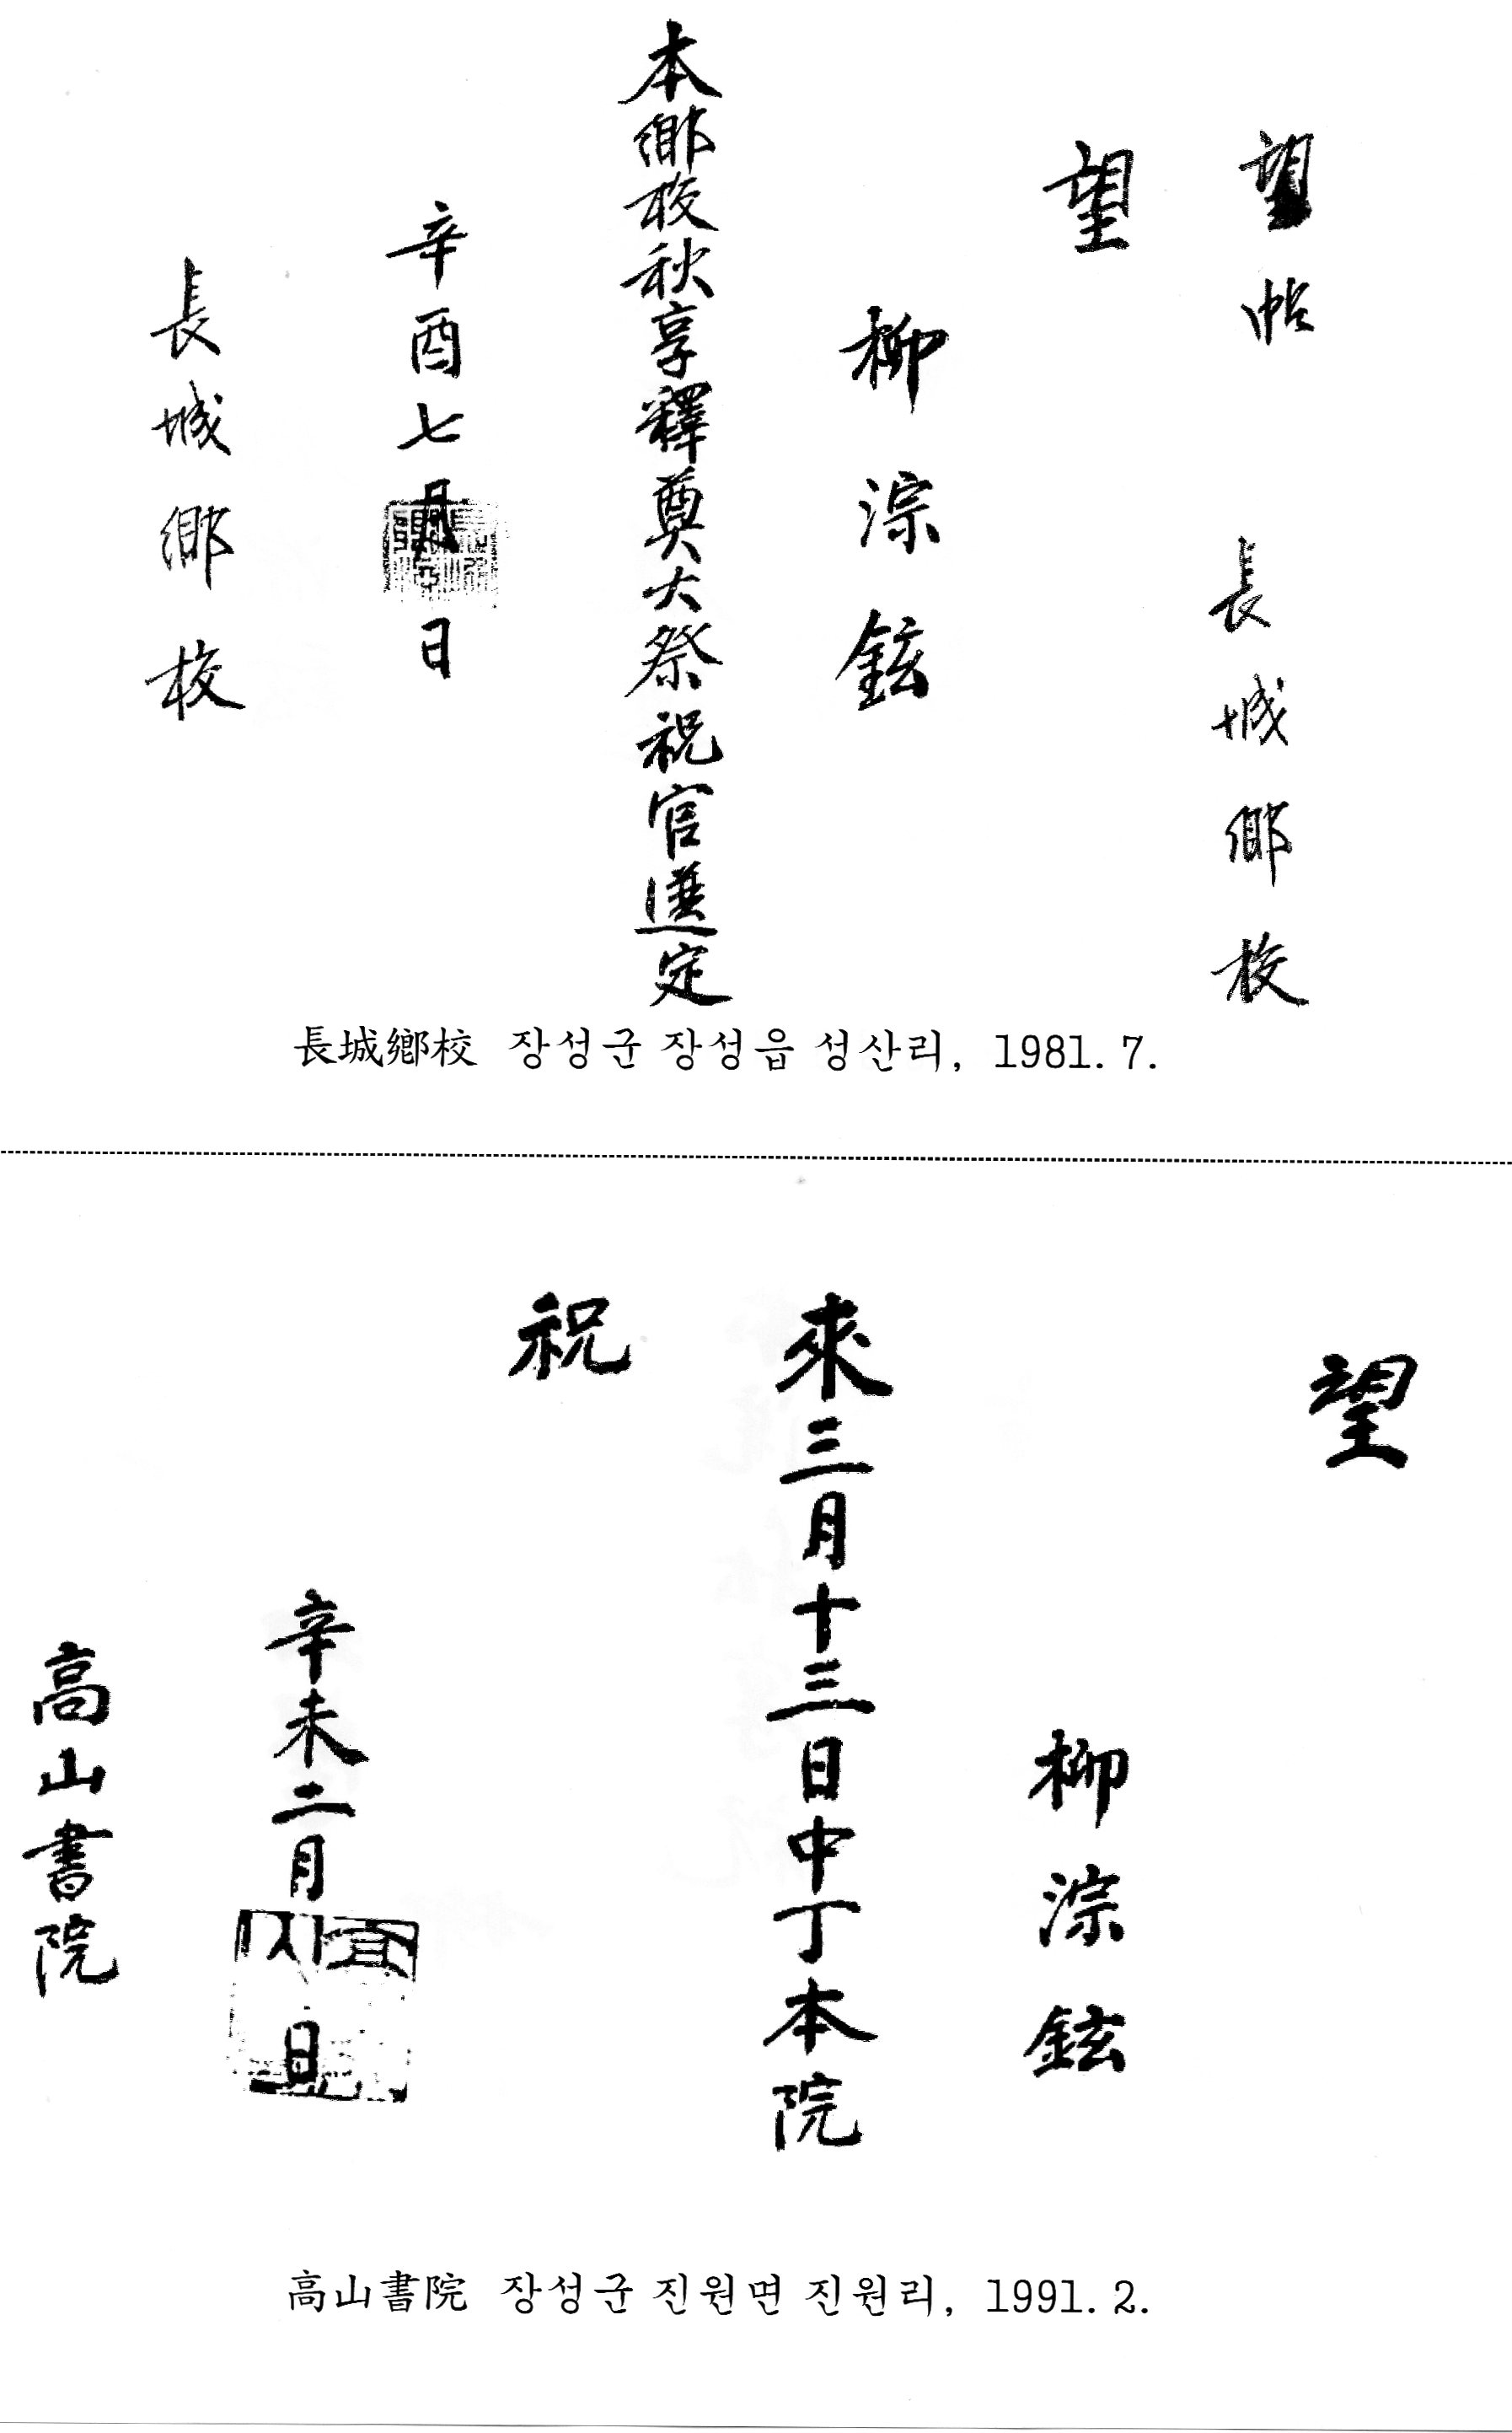 望帖 長城鄕校
望
柳淙鉉
本鄕校秋享釋奠大祭祝官選定
辛酉七月 日
長城鄕校
長城鄕校 장성군 장성읍 성산리, 1981. 7.
望
柳淙鉉
來三月十三日中丁本院
祝
辛未二月 日
高山書院
高山書院 장성군 진원면 진원리, 1991. 2.